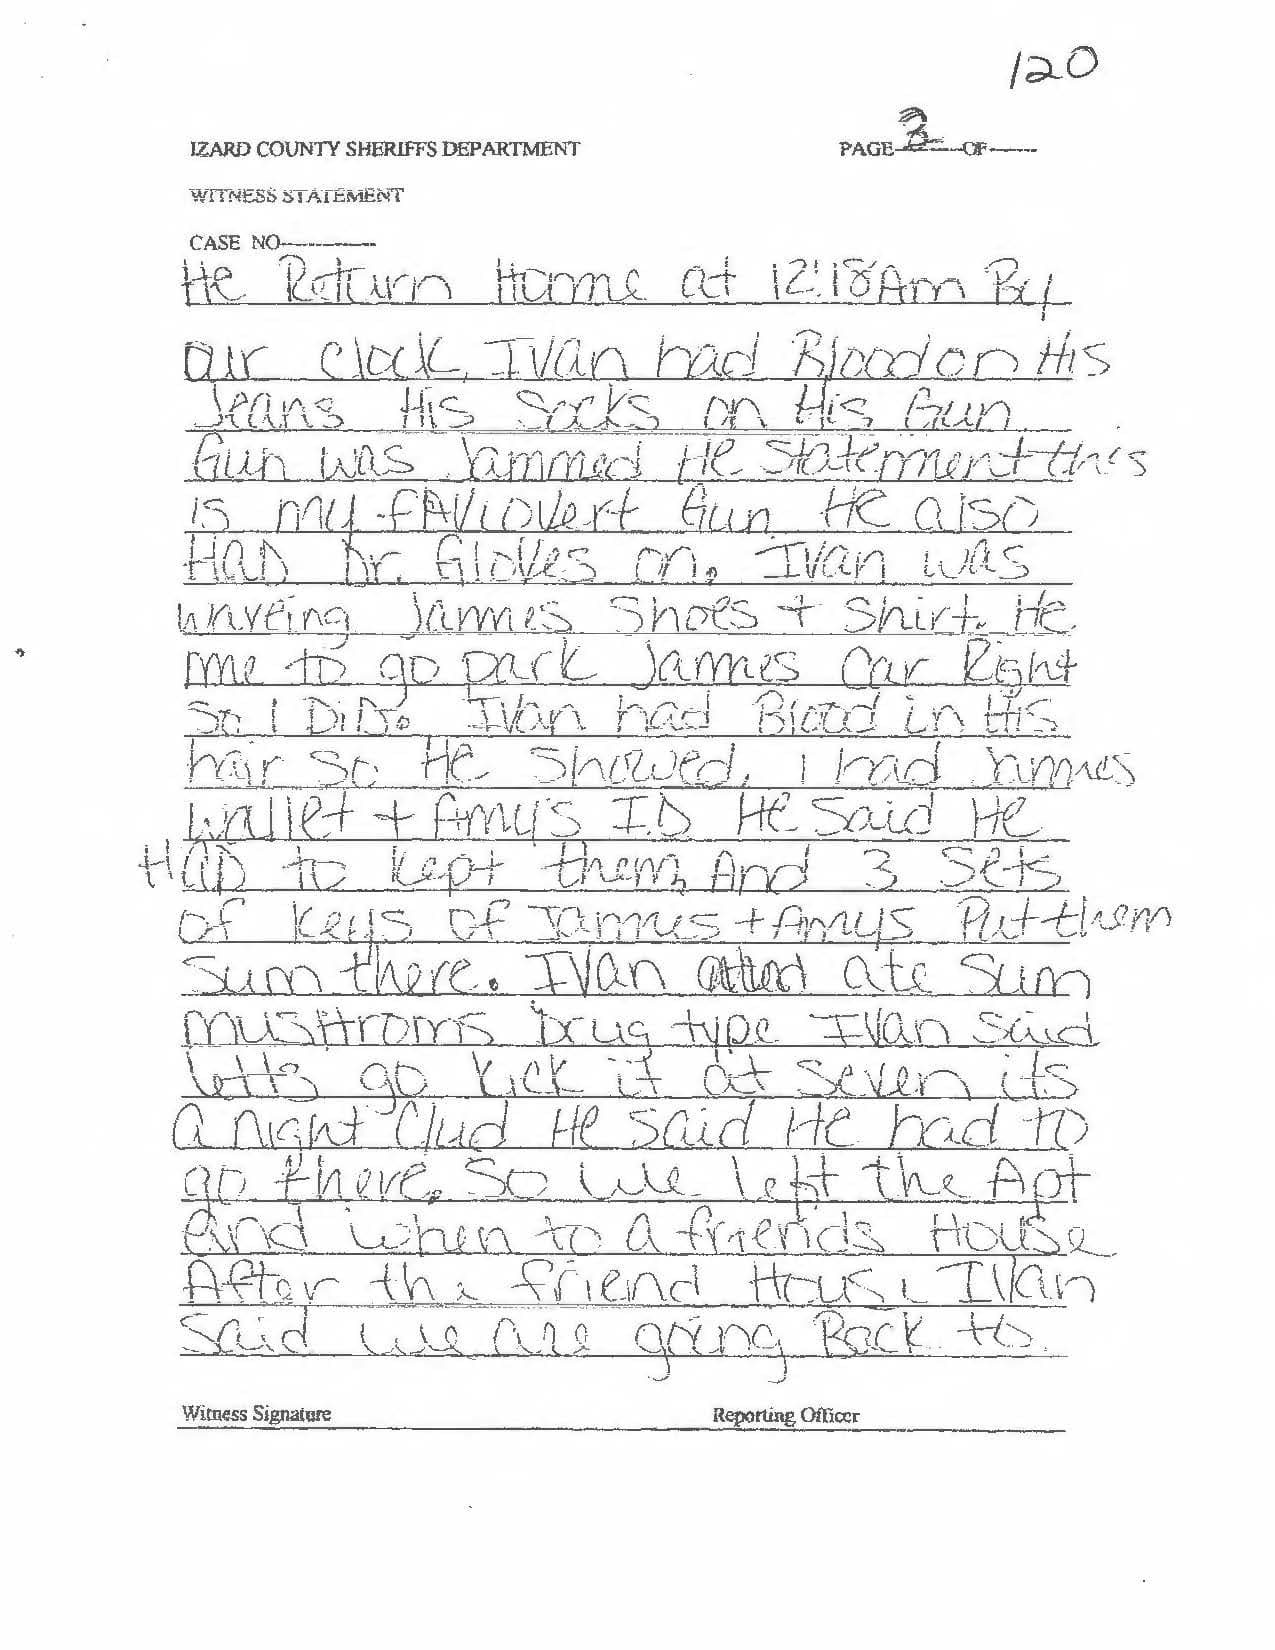 120
IZARD COUNTY SHERIFFS DEPARTMENT PAGE 3 OF
WITNESS STATEMENT
CASE NO
He Return Home at 12:18 Am By
our clock, Ivan had Blood on His
Jeans His Socks on His Gun
Gun was Jammed He statement this
is my fAviovert Gun He also
HAD Dr. Gloves on. Ivan was
waveing James Shoes + Shirt. He
me to go park James Car Right
So I DiD. Ivan had Blood in His
hair so He Showed, I had James
Wallet + Amy's I.D He Said He
HAD to kept them, And 3 Sets
of Keys of James + Amys Put them
Sum there. Ivan ate Sum
musHroms Drug type Ivan Said
letts go kick it at seven its
A night Clud He said He had to
go there. So we left the Apt
And when to a friends House
After the friend House Ivan
Said we are going Back to
Witness Signature Reporting Officer